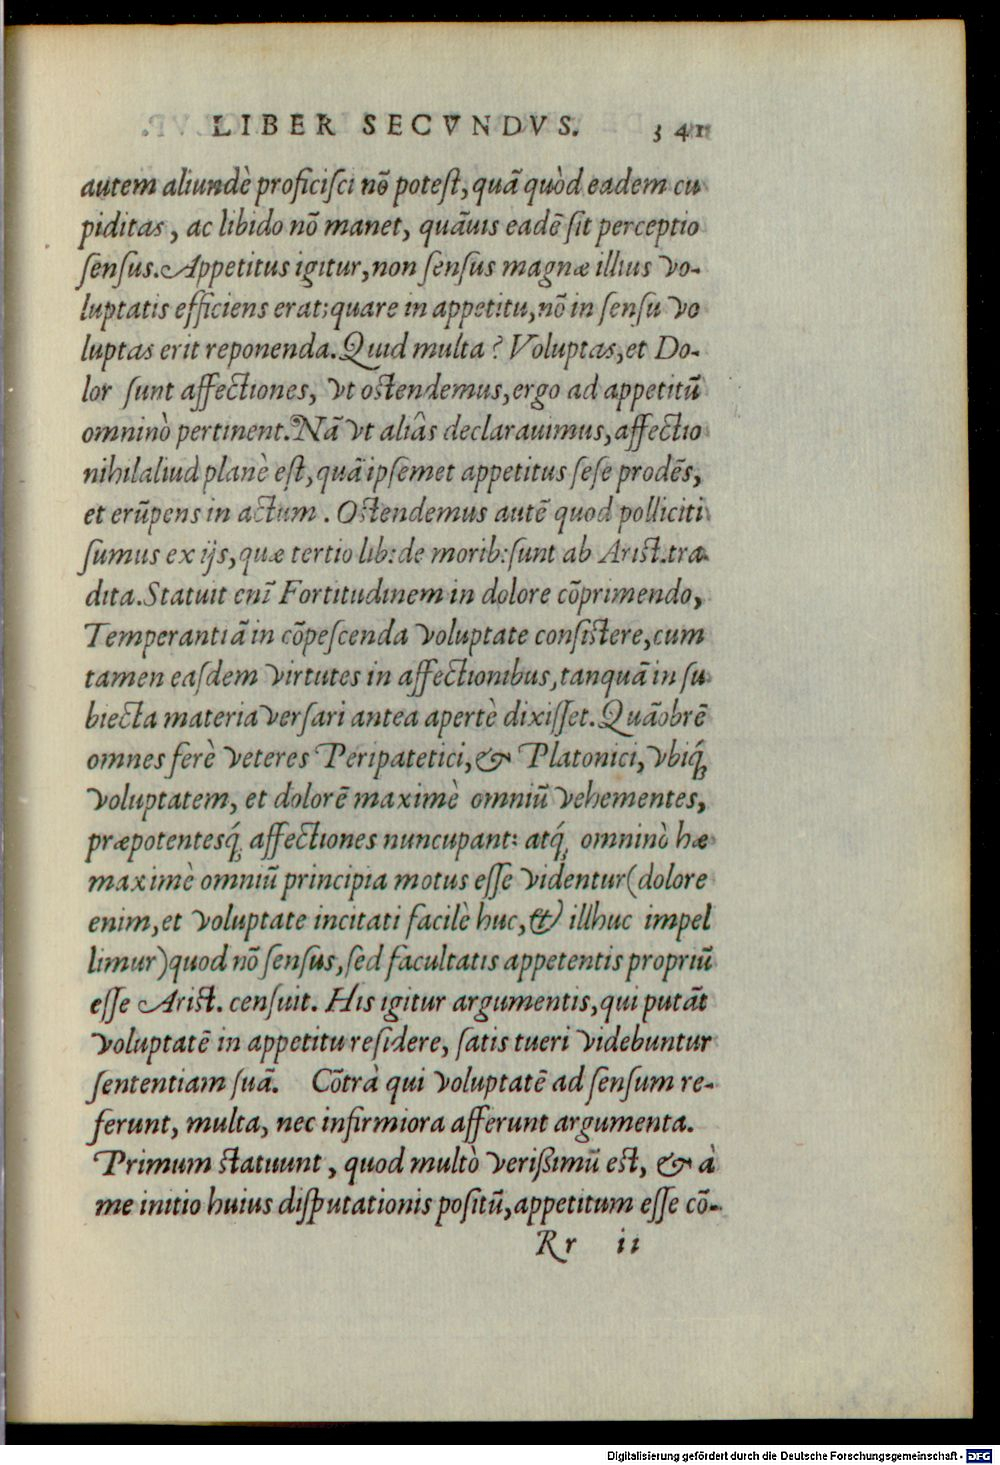 LIBER SECVNDVS. 341
autem aliundè proficisci nõ potest, quã quòd eadem cu
piditas, ac libido nõ manet, quãuis eadẽ sit perceptio
sensus. Appetitus igitur, non sensus magnæ illius vo-
luptatis efficiens erat; quare in appetitu, nõ in sensu vo
luptas erit reponenda. Quid multa? Voluptas, et Do-
lor sunt affectiones, vt ostendemus, ergo ad appetitũ
omninò pertinent. Nã vt aliâs declarauimus, affectio
nihil aliud planè est, quã ipsemet appetitus sese prodẽs,
et erũpens in actum. Ostendemus autẽ quod polliciti
sumus ex ijs, quæ tertio lib: de morib: sunt ab Arist. tra
dita. Statuit enĩ Fortitudinem in dolore cõprimendo,
Temperantiã in cõpescenda voluptate consistere, cum
tamen easdem virtutes in affectionibus, tanquã in su
biecta materia versari antea apertè dixisset. Quãobrẽ
omnes ferè veteres Peripatetici, & Platonici, vbiq́;
voluptatem, et dolorẽ maximè omniũ vehementes,
præpotentesq́; affectiones nuncupant: atq́; omninò hæ
maximè omniũ principia motus esse videntur (dolore
enim, et voluptate incitati facilè huc, & illhuc impel
limur) quod nõ sensus, sed facultatis appetentis propriũ
esse Arist. censuit. His igitur argumentis, qui putãt
voluptatẽ in appetitu residere, satis tueri videbuntur
sententiam suã. Cõtrà qui voluptatẽ ad sensum re-
ferunt, multa, nec infirmiora afferunt argumenta.
Primum statuunt, quod multò verißimũ est, & à
me initio huius disputationis positũ, appetitum esse cõ-
Rr ii
Digitalisierung gefördert durch die Deutsche Forschungsgemeinschaft - DFG